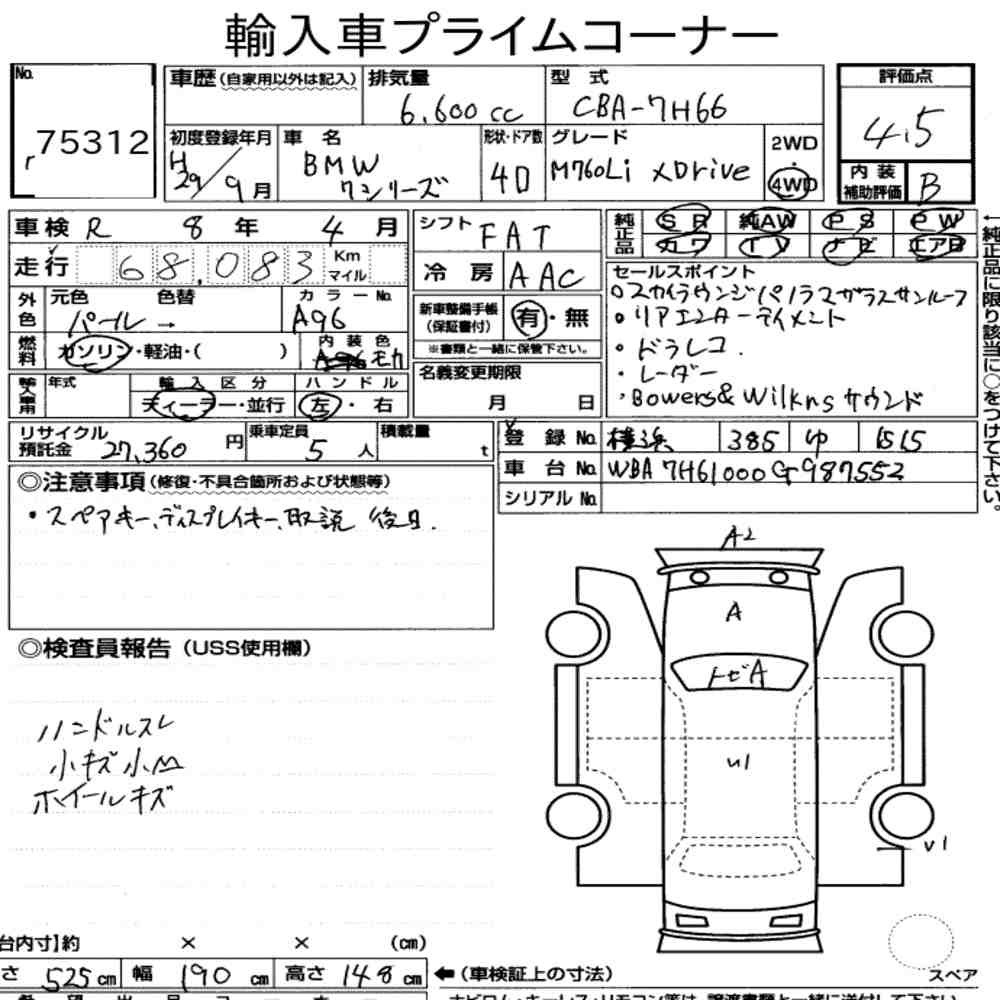 輸入車プライムコーナー
No.
75312
車歴(自家用以外は記入)
排気量
6,600cc
型式
CBA-7H66
評価点
4.5
初度登録年月
H29/9月
車名
BMW
7シリーズ
形状・ドア数
4D
グレード
M760Li xDrive
2WD
・
4WD
内装
補助評価
B
車検 R 8年 4月
シフト
FAT
純正品
SR 純AW PS PW
カワ TV ナビ エアB
←純正品に限り該当に○をつけて下さい。
走行 68,083 Km
マイル
冷房 AAC
セールスポイント
○スカイラウンジパノラマガラスサンルーフ
・リアエンターテイメント
・ドラレコ.
・レーダー
・Bowers&Wilkinsサウンド
外色
元色 色替
パール→
カラーNo.
A96
新車整備手帳
(保証書付)
有・無
※書類と一緒に保管下さい。
燃料
ガソリン・軽油・( )
内装色
モカ
名義変更期限
月 日
輸入車用
年式
輸入区分
ディーラー・並行
ハンドル
左・右
リサイクル
預託金 27,360 円
乗車定員
5人
積載量
t
登録No. 横浜 385 ゆ 1515
車台No. WBA7H61000G987552
シリアルNo.
◎注意事項(修復・不具合箇所および状態等)
・スペアキー、ディスプレイキー、取説 後日.
◎検査員報告(USS使用欄)
ハンドルスレ
小キズ小凹
ホイールキズ
A2
A
トビA
U1
U1
台内寸】約 × × (cm)
さ 525cm 幅 190cm 高さ 148cm
←(車検証上の寸法)
スペア